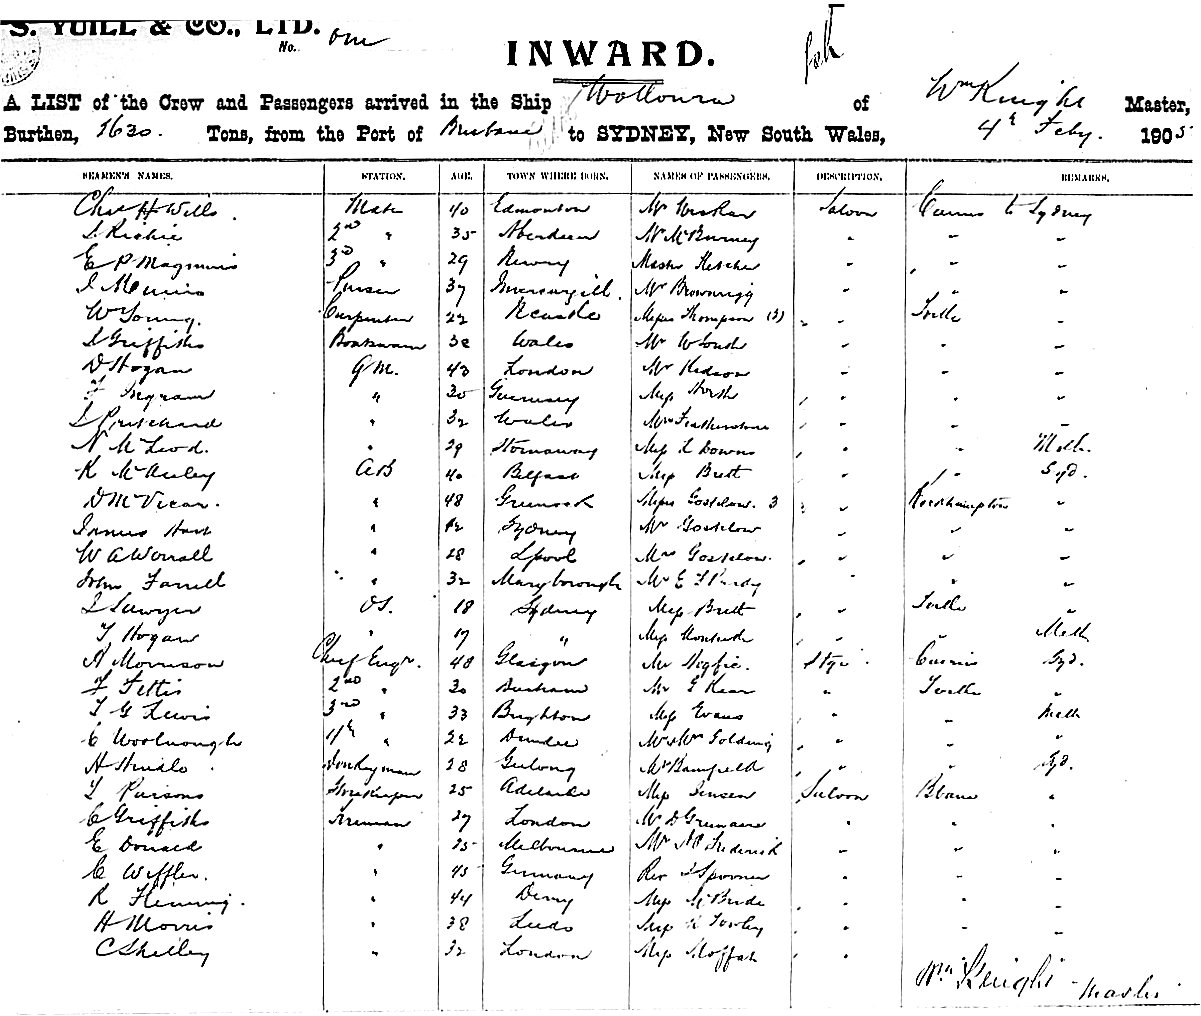 S. YUILL & CO., LTD.
No. one
INWARD.
A LIST of the Crew and Passengers arrived in the Ship Wollowra of Wm Knight Master,
Burthen, 1630. Tons, from the Port of Brisbane to SYDNEY, New South Wales, 4th Feby. 1905
SEAMEN'S NAMES. STATION. AGE. TOWN WHERE BORN. NAMES OF PASSENGERS. DESCRIPTION. REMARKS.
Chas H Wills. Mate 40 Edmonton Mr Saloon Cairns to Sydney
Ritchie 2nd " 35 Aberdeen Mr McBurney " " "
E P Maginnis 3rd " 29 Newry Master Fletcher " " "
Purser 37 Invercargill. Mr Brownrigg " " "
W Young. Carpenter 22 Newcastle Misses Thompson (3) " Tville "
Griffiths Boatswain 38 Wales Mr W South " " "
D Hogan QM. 43 London Mr Hudson " " "
Ingram " 30 Guernsey Miss North " " "
Pritchard " 32 Wales Mrs Featherstone " " "
N McLeod. " 29 Stornoway Miss L Downs " " Melb.
K McAuley AB 40 Belfast Miss Brett " " Syd.
D McVicar. " 48 Greenock Misses Gostelow. 3 " Rockhampton "
James Hart " Sydney Mr Gostelow " " "
W A Worrall " 28 Lpool Mrs Gostelow. " " "
John Farrell " 32 Maryborough Mr E Purdy " " "
Sawyer OS. 18 Sydney Miss Brett " Tville "
T Hogan " 17 " Miss " " Melb
A Morrison Chief Engr. 48 Glasgow Mr Stge. Cairns Syd.
F Fettis 2nd " 30 Durham Mr G Kear " Tville "
T G Lewis 3rd " 33 Brighton Miss Evans " " Melb
C Woolnough 4th " 22 Dundee Mr & Mrs Golding " " "
H Donkeyman 28 Geelong Mr Bamfield " " Syd.
Parsons Storekeeper 25 Adelaide Miss Jensen Saloon Bbane "
C Griffiths Fireman 27 London Mr D " " "
E Donald " 25 Melbourne Mr Frederick " " "
C Wiffler. " 45 Germany Rev Spooner " " "
R Fleming. " 44 Derry Miss McBride " " "
H Morris " 38 Leeds Miss " " "
C Shelley " 32 London Miss Moffat " "
Wm Knight Master